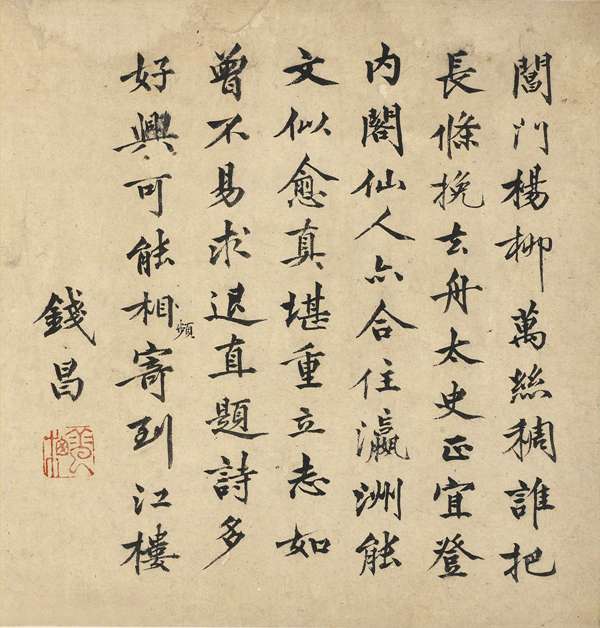 閶門楊柳萬絲稠誰把
長條挽去舟太史正宜登
內閣仙人亦合住瀛洲能
文似愈真堪重立志如
曾不易求退直題詩多
好興可能相頻寄到江樓
錢昌